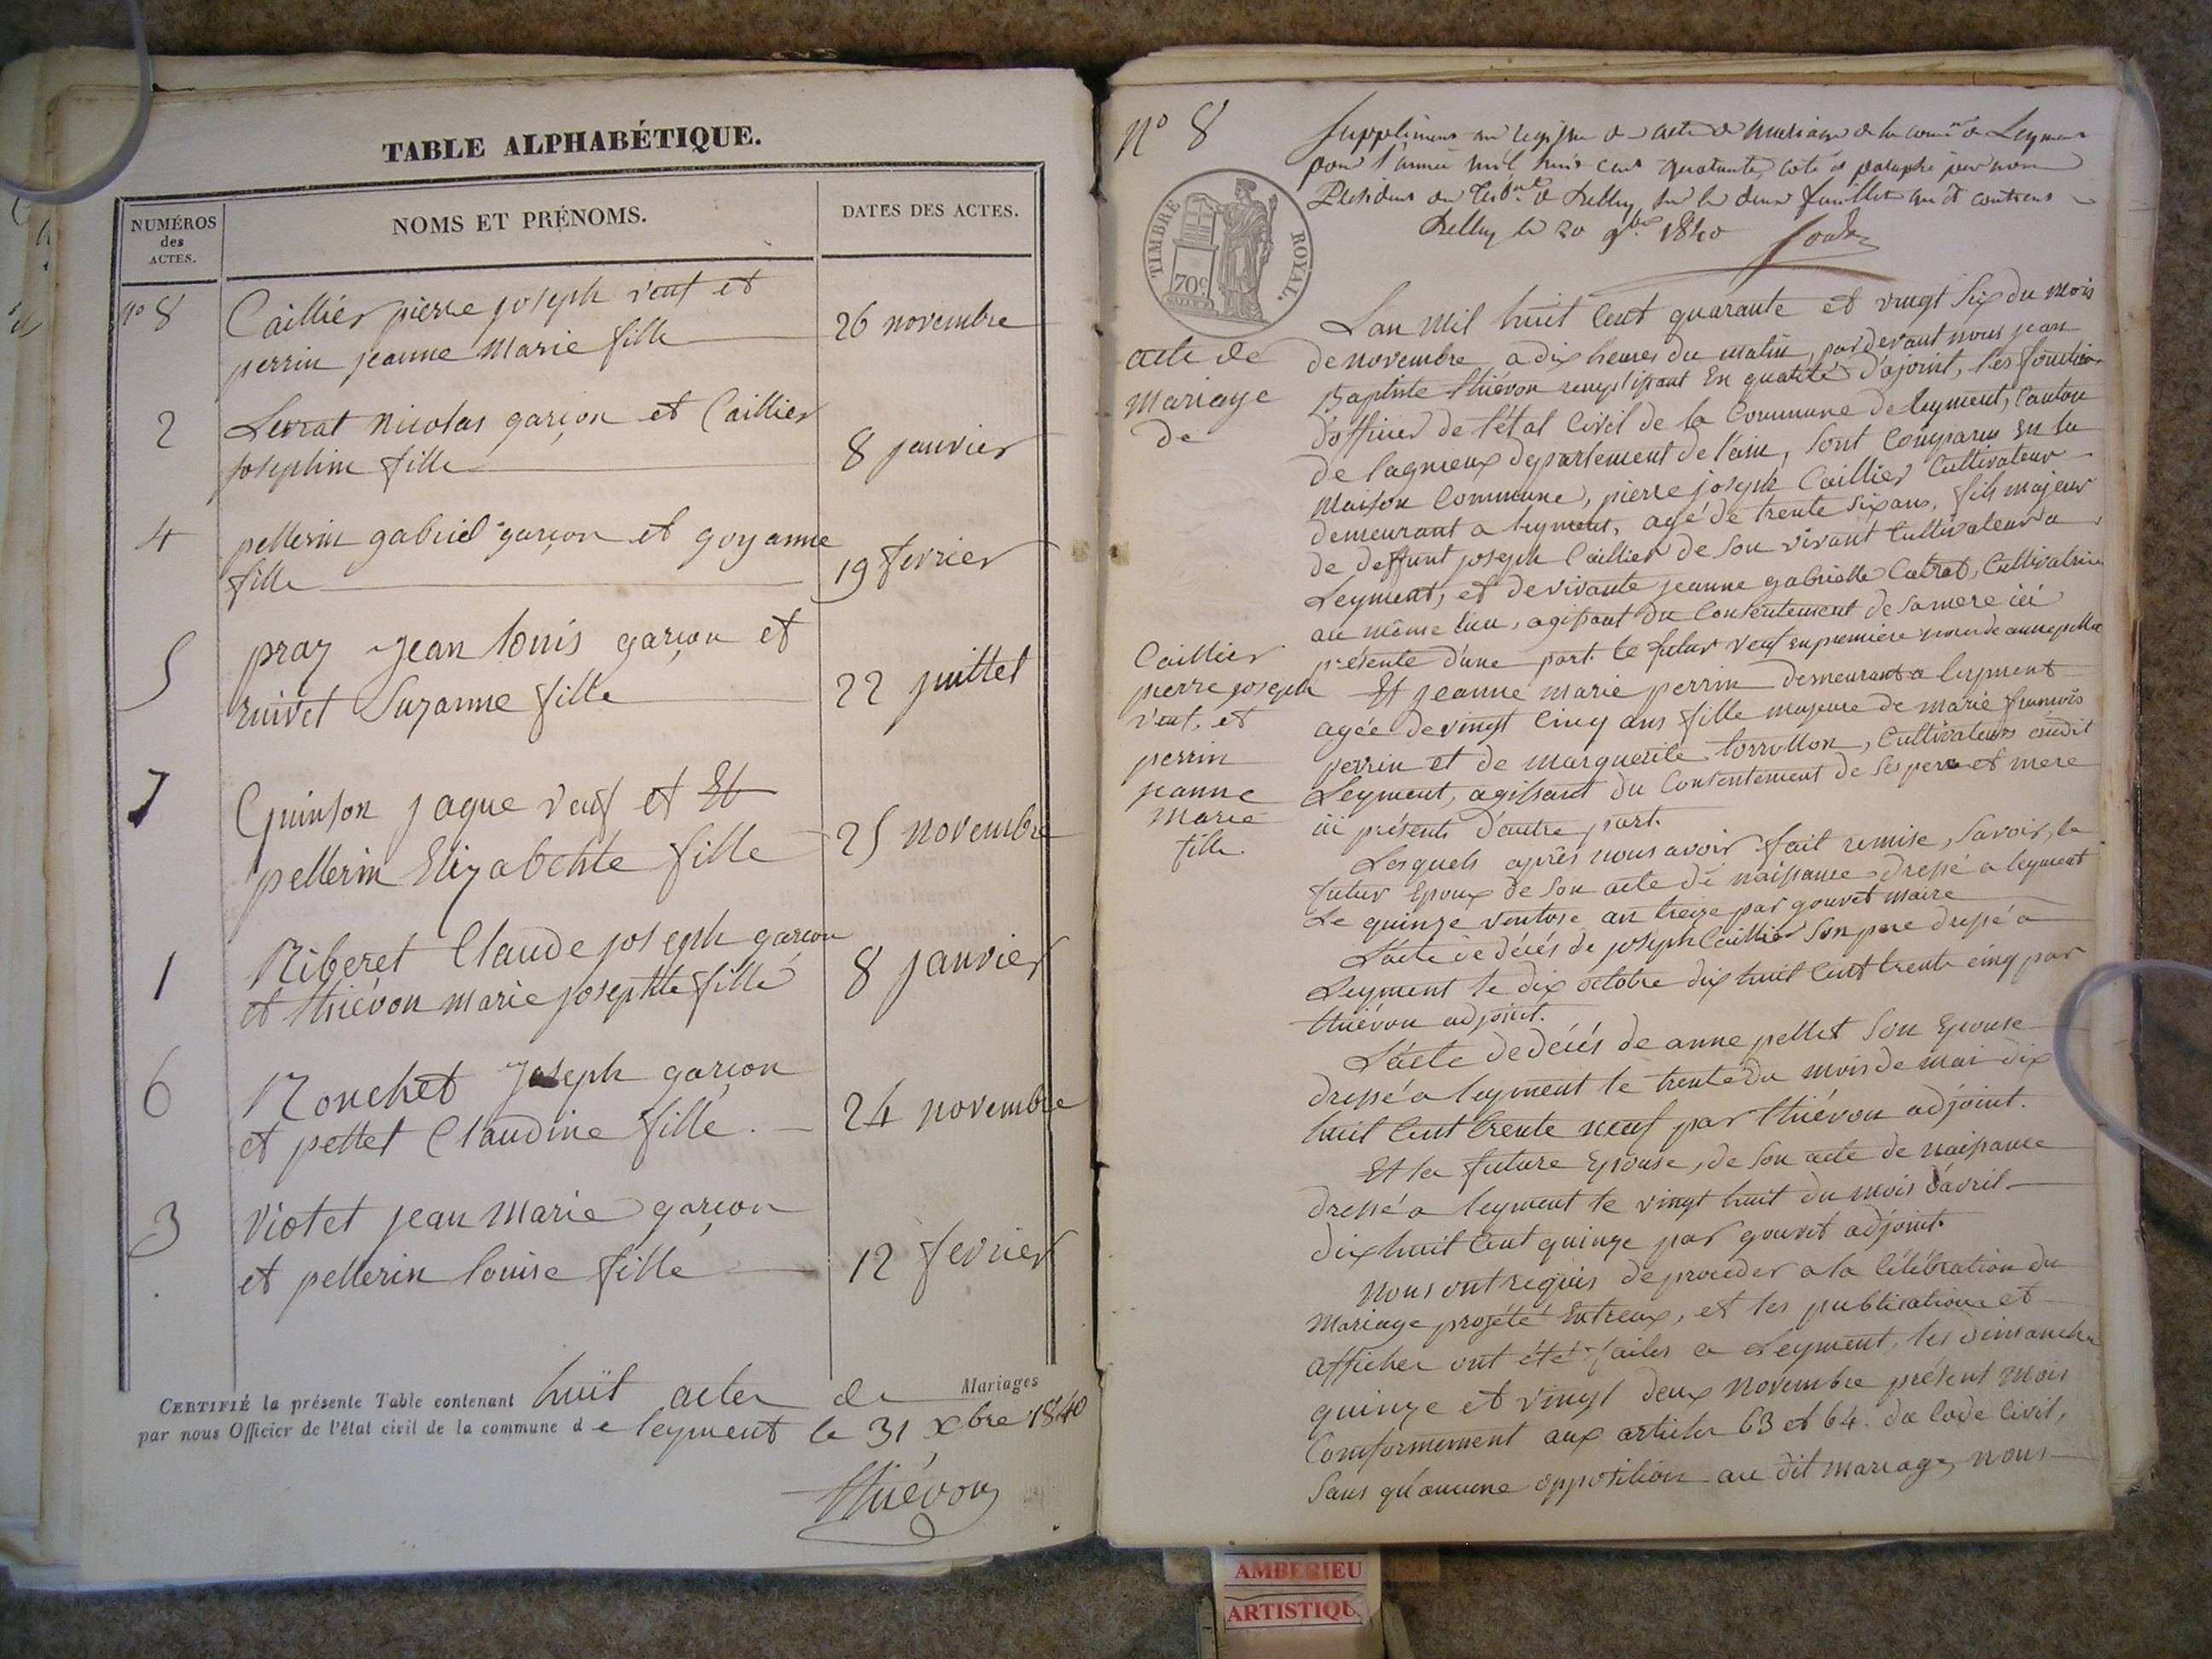 TABLE ALPHABÉTIQUE.
NUMÉROS
des
ACTES.
NOMS ET PRÉNOMS.
DATES DES ACTES.
nº 8
Caillier pierre joseph veuf et
perrin jeanne marie fille
26 novembre
2
Levrat nicolas garçon et Caillier
josephine fille
8 janvier
4
pellerin gabriel garçon et goy anne
fille
19 fevrier
5
pray jean louis garçon et
ruivet Suzanne fille
22 juillet
7
Guinson jaque veuf et Et
pellerin Elizabethte fille
25 novembre
1
Riberet Claude joseph garçon
et thiévon marie josephtte fille
8 janvier
6
Ronchet Joseph garçon
et pellet Claudine fille.
24 novembre
3
Violet jean marie garçon
et pellerin louise fille
12 fevrier
CERTIFIÉ la présente Table contenant huit actes de Mariages
par nous Officier de l'état civil de la commune de leyment le 31 xbre 1840
thiévon
Nº 8
Supplément au registre de actes de mariage de la comne de Leyment
pour l'année mil huit cent quarante, coté et paraphé par nous
Président du de Belley, sur les deux feuillets qu'il contient
Belley le 20 9bre 1840
TIMBRE ROYAL.
70c
acte de
mariage
de
Caillier
pierre joseph
veuf. et
perrin
jeanne
marie
fille.
Lan mil huit cent quarante et vingt six du mois
de novembre a dix heures du matin, pardevant nous jean
Baptiste thiévon remplissant En qualité d'ajoint, les fonctions
d'officier de l'état Civil de la Commune de leyment, Canton
de lagnieux département de l'ain, sont comparus En la
maison Commune, pierre joseph Caillier Cultivateur
demeurant a leyment, agé de trente six ans, fils majeur
de deffunt joseph Caillier de son vivant Cultivateur a
Leyment, et de vivante jeanne gabrielle Catrat, Cultivatrice
au même lieu, agissant du Consentement de sa mere ici
présente d'une part. le futur veuf en premiere noces de anne pellet
Et jeanne marie perrin demeurant a leyment
agée de vingt cinq ans fille majeure de marie francois
perrin et de marguerite torrollon, Cultivateurs audit
Leyment, agissant du Consentement de ses pere et mere
ici présents d'autre part.
Lesquels après nous avoir fait remise, Savoir, le
futur Epoux de son acte de naissance dressé a leyment
Le quinze ventose an treize par gouvet maire
L'acte de décés de joseph Caillier son pere dressé a
Leyment le dix octobre dix huit Cent trente cinq par
thiévon adjoint.
L'acte de décés de anne pellet son Epouse
dressé a leyment le trente du mois de mai dix
huit Cent trente neuf par thiévon adjoint.
Et la future Epouse, de son acte de naissance
dressé a leyment le vingt huit du mois d'avril
dix huit Cent quinze par gouvet adjoint.
Nous ont requis de proceder a la Célébration du
mariage projété Entreux, et les publications et
affiches ont été failes a Leyment, les dimanches
quinze et vingt deux novembre présent mois
Comformement aux articles 63 et 64. du Code Civil,
Sans qu'aucune opposition au dit mariage, nous
AMBERIEU
ARTISTIQU